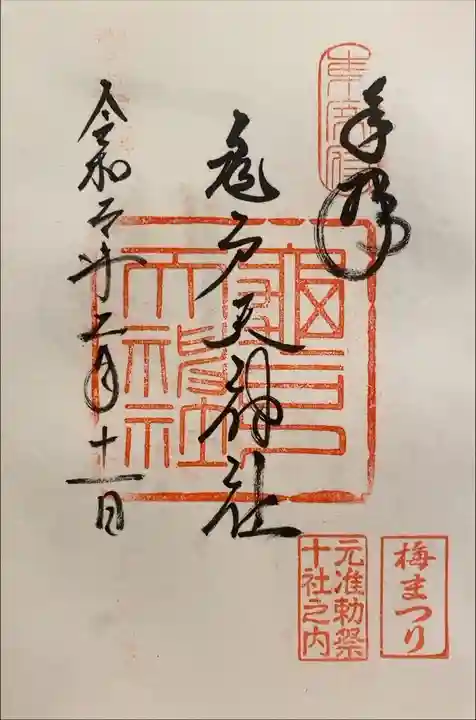 奉拝
亀戸天神社
令和六年二月十一日
龜戸
天神社
梅まつり
元准勅祭
十社之内